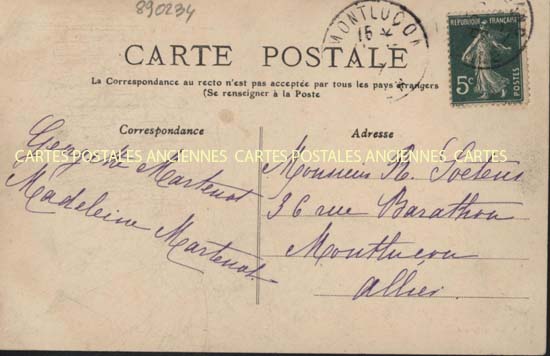 890234
MONTLUCON
15
RÉPUBLIQUE FRANÇAISE
5c
POSTES
CARTE POSTALE
La Correspondance au recto n'est pas acceptée par tous les pays étrangers
(Se renseigner à la Poste
Correspondance
Adresse
CARTES POSTALES ANCIENNES CARTES POSTALES ANCIENNES CARTES
Martenot
Madeleine Martenot
Monsieur R.
36 rue Barathon
Montluçon
Allier